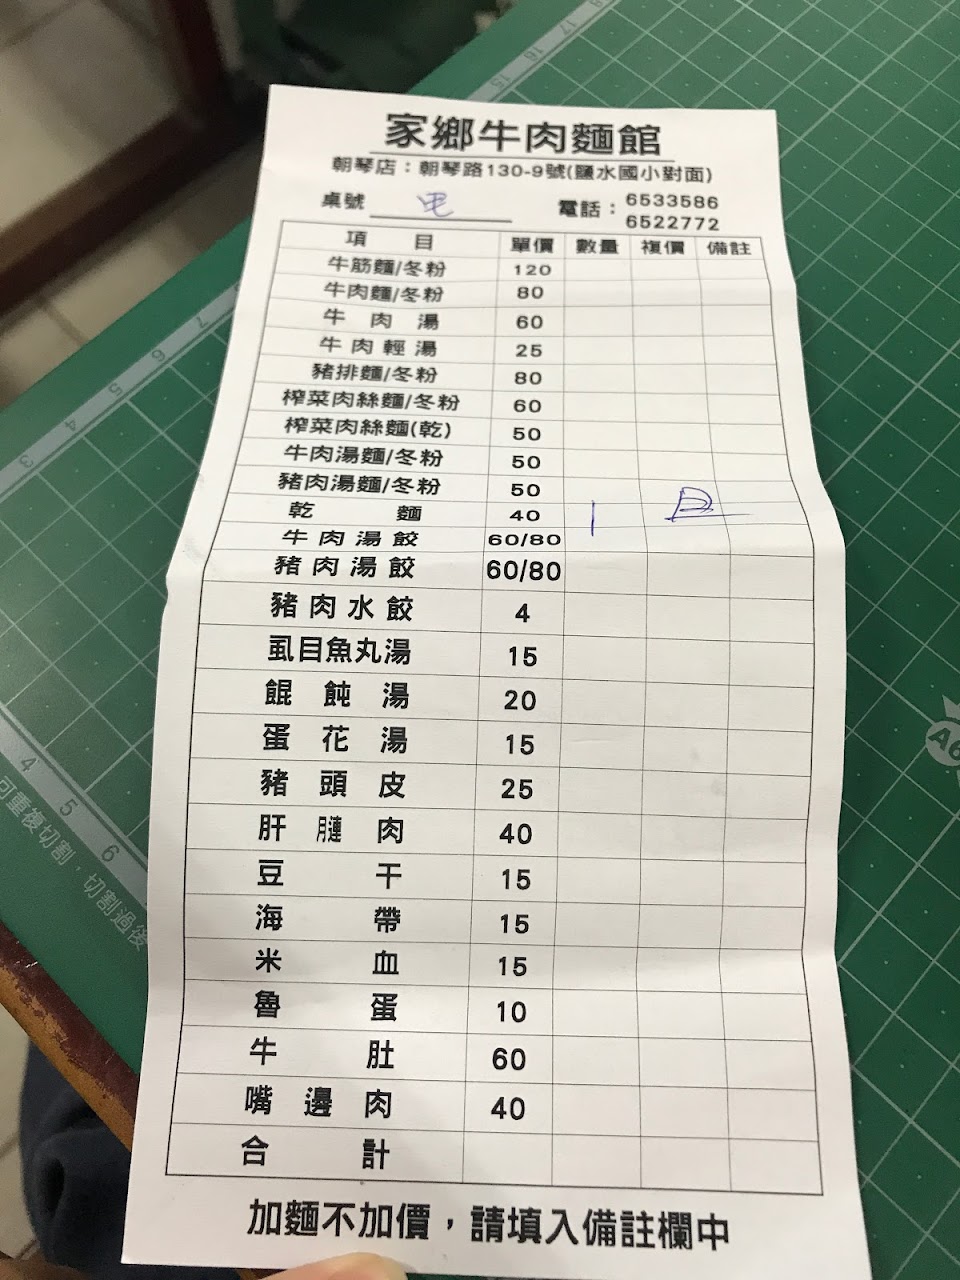 家鄉牛肉麵館
朝琴店：朝琴路130-9號(鹽水國小對面)
桌號 電話：6533586
6522772
項目 單價 數量 複價 備註
牛筋麵/冬粉 120
牛肉麵/冬粉 80
牛肉湯 60
牛肉輕湯 25
豬排麵/冬粉 80
榨菜肉絲麵/冬粉 60
榨菜肉絲麵(乾) 50
牛肉湯麵/冬粉 50
豬肉湯麵/冬粉 50
乾麵 40 1
牛肉湯餃 60/80
豬肉湯餃 60/80
豬肉水餃 4
虱目魚丸湯 15
餛飩湯 20
蛋花湯 15
豬頭皮 25
肝膁肉 40
豆干 15
海帶 15
米血 15
魯蛋 10
牛肚 60
嘴邊肉 40
合計
加麵不加價，請填入備註欄中
7
6
5
4
3
4
5
6
可重複切割，切割過後
17
16
15
A6